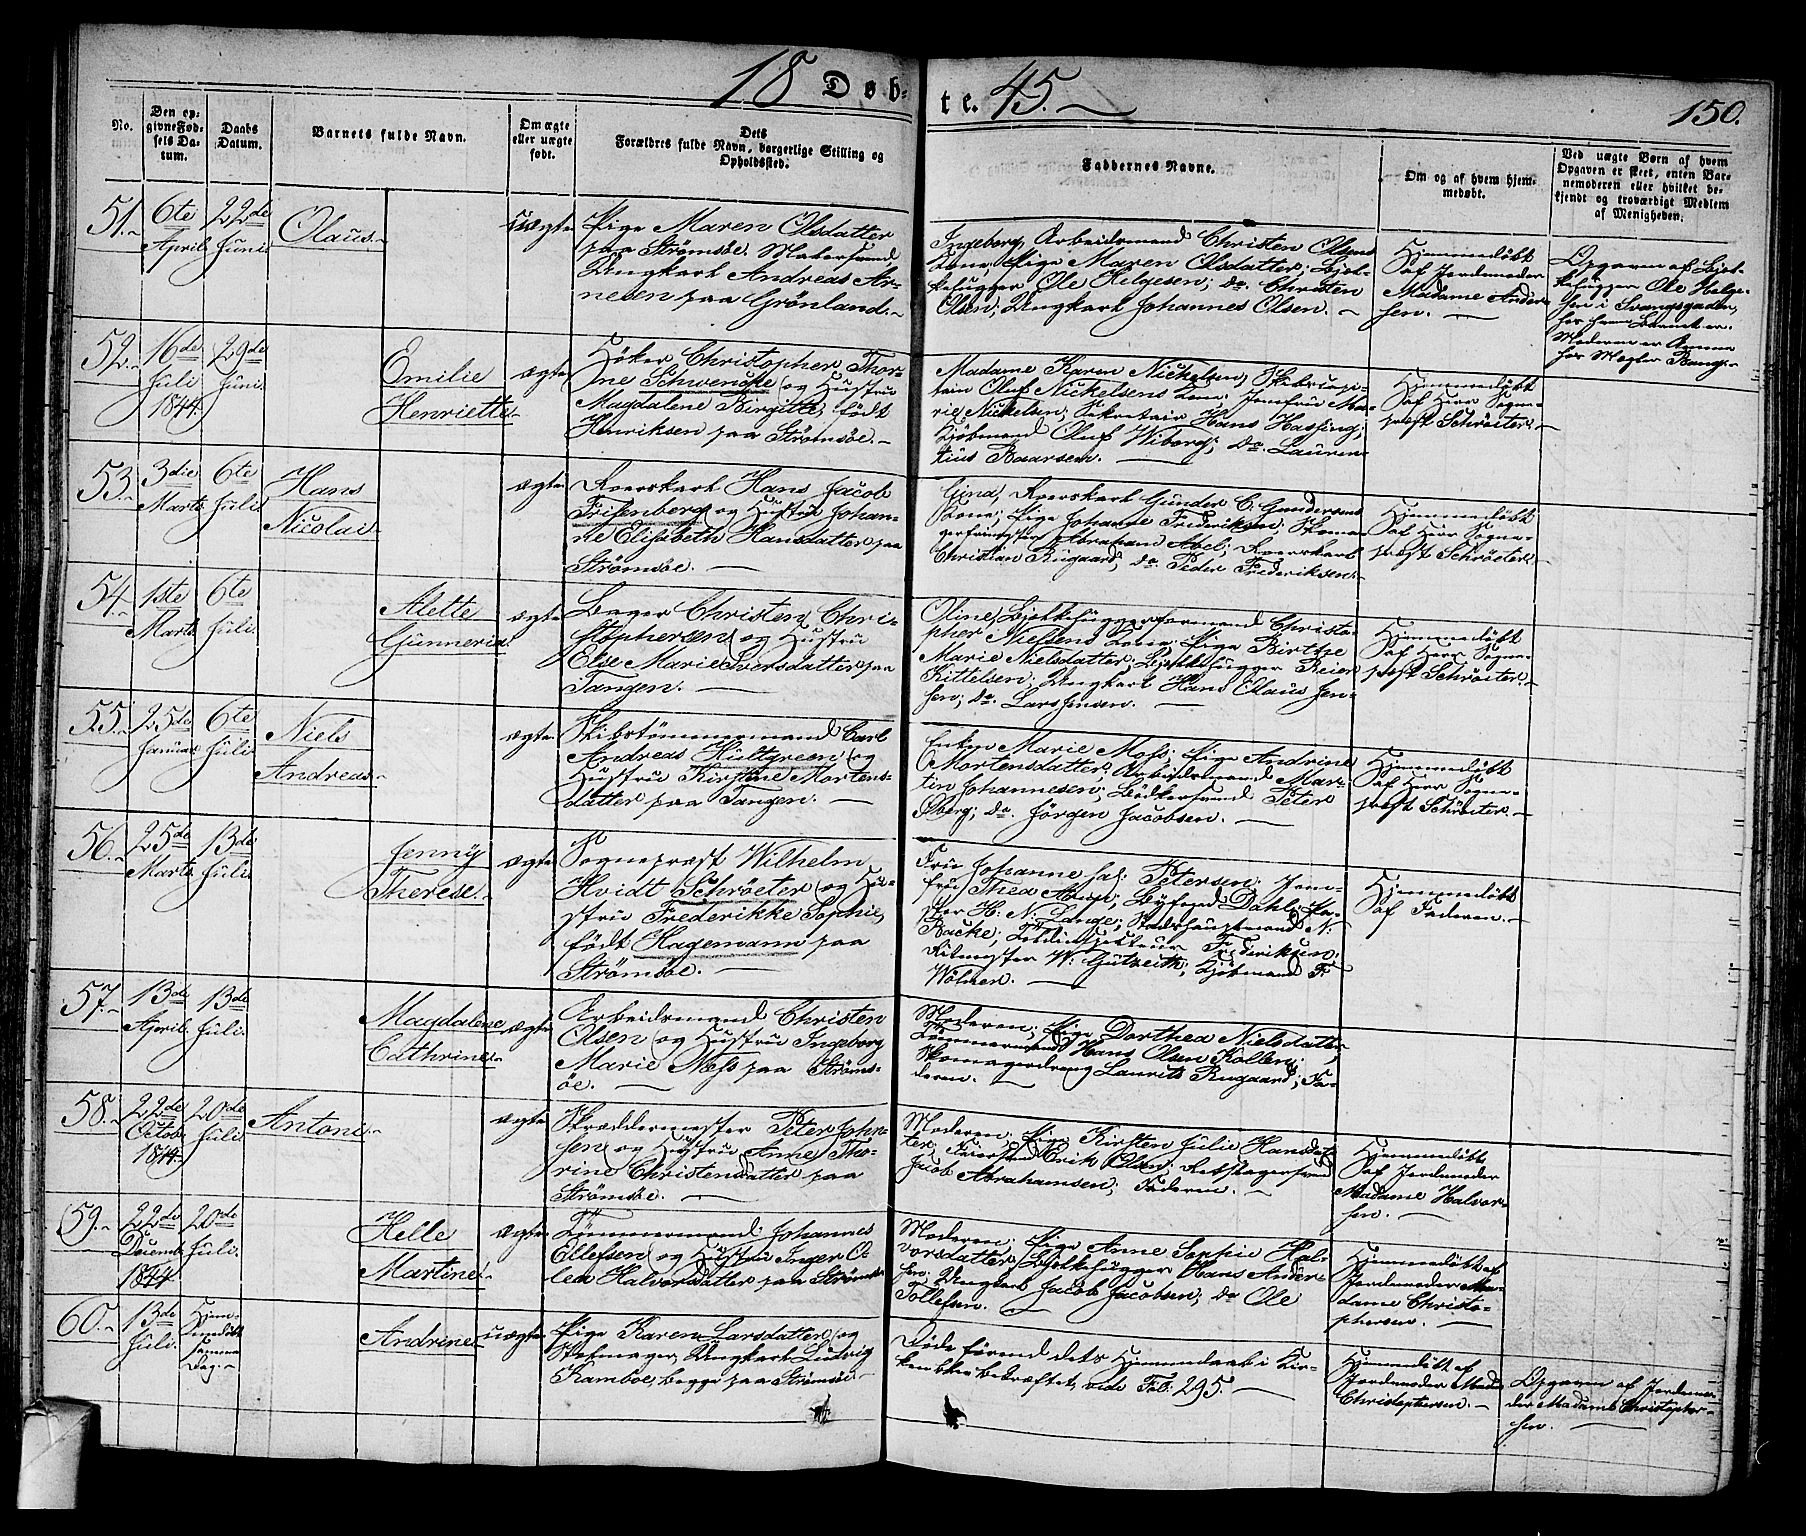 18 Døb-
te. 45.
150.
No.
Den op-
givne Fød-
sels Da-
tum.
Daabs
Datum.
Barnets fulde Navn.
Om ægte
eller uægte
født.
Dets
Forældres fulde Navn, borgerlige Stilling og
Opholdssted.
Faddernes Navne.
Om og af hvem hjem-
medøbt.
Ved uægte Børn af hvem
Opgaven er skeet, enten Bar-
nemoderen eller hvilket be-
kjendt og troværdigt Medlem
af Menigheden.
51.
6te
April.
22de
Juni.
Olaus.
uægte
Pige Maren Olsdatter
paa Strømsøe. Matersvend
Ungkarl Andreas Ar-
nesen paa Grønland.
Ingeborg, Arbeidsmand Christen Olsens
Kone; Pige Maren Olsdatter; Bjel-
kehugger Ole Helgesen; do. Christen
Olsen; Ungkarl Johannes Olsen.
Hjemmedøbt
af Jordemoder
Madame Ander-
sen.
Opgaven af Bjel-
kehugger Ole Helge-
sen i Svangsgaden,
hos ham Barnet er.
Moderen er Amme
hos Mægler Bang.
52.
16de
Juli
1844.
29de
Juni.
Emilie
Henriette
ægte
Høker Christopher Thor-
ne Schwencke og Hustru
Magdalene Birgitte, født
Henriksen paa Strømsøe.
Madame Karen Nickelsen, Skibscapi-
tain Oluf Nickelsens Kone; Jomfrue Ma-
rie Nickelsen; Sekretair Hans Hassing;
Kjøbmand Oluf Wiborg; do. Lauren-
tius Baarsen.
Hjemmedøbt
af Herr Sogne-
præst Schrøeter.
53.
3die
Marts
6te
Juli.
Hans
Nicolai
ægte
Roerskarl Hans Jacob
Frisenberg og Hustru Johan-
ne Elisabeth Hansdatter paa
Strømsøe.
Gina, Roerskarl Gunder C. Gundersens
Kone; Pige Johanne Frederiksen; Skoma-
gersvend Abraham Abel; Roerskarl
Christian Rugaard; do. Peder Frederiksen.
Hjemmedøbt
af Herr Sogne-
præst Schrøeter.
54.
1ste
Marts.
6te
Juli.
Alette
Gunneria.
ægte
Bager Christen Chri-
stophersen og Hustru
Else Marie Iversdatter paa
Tangen.
Oline, Bjelkehuggerformand Christo-
pher Nielsens Kone; Pige Birthe
Marie Nielsdatter; Bjelkehugger Reier
Kittelsen; Ungkarl Hans Claus Jen-
sen; do. Lars Jensen.
Hjemmedøbt
af Herr Sogne-
præst Schrøeter.
55.
25de
Januar.
6te
Juli.
Niels
Andreas
ægte
Skibstømmermand Carl
Andreas Hultgreen og
Hustru Kirstine Mortens-
datter paa Tangen.
Enken Marie Moss; Pige Andrine
Mortensdatter; Arbeidsmand Mar-
tin Johannesen; Bødkersvend Peter
Øberg; do. Jørgen Jacobsen.
Hjemmedøbt
af Herr Sogne-
præst Schrøeter.
56.
25de
Marts
13de
Juli.
Jenny
Therese.
ægte
Sognepræst Wilhelm
Hvidt Schrøeter og Hu-
stru Frederikke Sophie,
født Hagemann paa
Strømsøe.
Frue Johanne sal: Petersen; Jom-
frue Thea Abel; Byfoged Dahl; Pa-
stor H: N: Lange; Stadshauptmand N:
Backe; Toldinspecteur Frederiksen;
Ritmester W: Gutzeith; Kjøbmand F:
Wölner.
Hjemmedøbt
af Faderen.
57.
13de
April.
13de
Juli.
Magdalene
Cathrine.
ægte
Arbeidsmand Christen
Olsen og Hustru Ingeborg
Marie Næss paa Strøms-
øe.
Moderen; Pige Dorthea Nielsdatter;
Tømmermand Hans Olsen Kollen;
Skomagerdreng Laurits Rugaard; Fa-
deren.
58.
22de
Octob.
1844.
20de
Juli.
Antoni.
ægte
Skræddermester Peter John-
sen og Hustru Anne Tho-
rine Christensdatter paa
Strømsøe.
Moderen; Pige Kirsten Julie Hansdat-
ter; Erik Olsen; Rebslagersvend
Jacob Abrahamsen; Faderen.
Hjemmedøbt
af Jordemoder
Madame Halvor-
sen.
59.
22de
Decemb.
1844.
20de
Juli.
Helle
Martine.
ægte
Tømmermand Johannes
Ellefsen og Hustru Inger O-
lea Halvorsdatter paa Strømsøe
Moderen; Pige Anne Sophie Hal-
vorsdatter; Bjelkehugger Hans Ander-
sen; Ungkarl Jacob Jacobsen; do Ole
Tollefsen.
Hjemmedøbt af
Jordemoder Ma-
dame Christo-
phersen.
60.
13de
Juli.
Hjem-
medøbt
samme
Dag.
Andrine
uægte
Pige Karen Larsdatter og
Skomager, Ungkarl Ludvig
Kamboe, begge paa Strømsøe.
Døde førend dets Hjemmedaab i Kir-
ken blev bekræftet, vide Fol: 295.
Hjemmedøbt af
Jordemoder Mad:
Christophersen.
Opgaven af Jordemo-
der Madame Christopher-
sen.